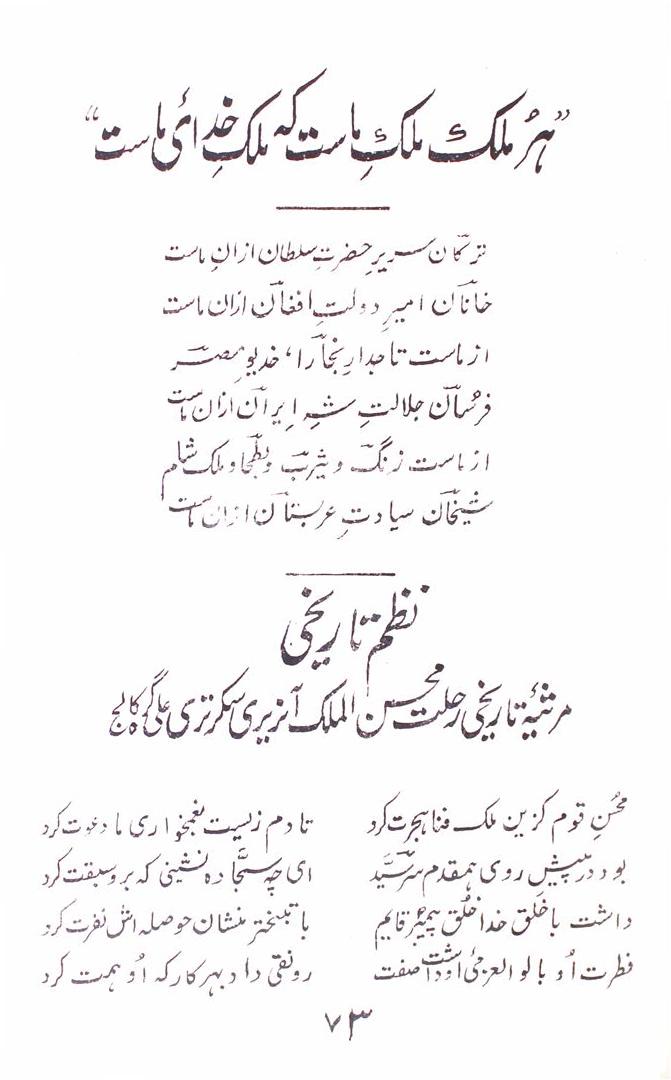 "ہر ملک ملکِ ماست کہ ملکِ خدائ ماست"
ترکان سریرِ حضرتِ سلطان ازانِ ماست
خانان امیرِ دولتِ افغان ازان ماست
از ماست تاجدارِ بخارا، خدیوِ مصر
فرسان جلالتِ شہِ ایران ازان ماست
از ماست زنگ و یثرب و بطحا و ملک شام
شیخان سیادتِ عربستان ازان ماست
نظم تاریخی
مرثیۂ تاریخی رحلت محسن الملک آنریری سکرتری علی گرہ کالج
محُسنِ قوم کزین ملک فنا ہجرت کرد تا دم زیست بغمخواری ما دعوت کرد
بود در پیش روی ہمقدم سر سیّد ای چہ سجّادہ نشینی کہ برو سبقت کرد
داشت با خَلق خدا خُلق پیمبرؐ قایم با تبختر منشان حوصلہ اش نفرت کرد
فطرت اُو با لو العزمی او داشت صفت رونقی داد بہر کار کہ اُو ہمت کرد
۷۳